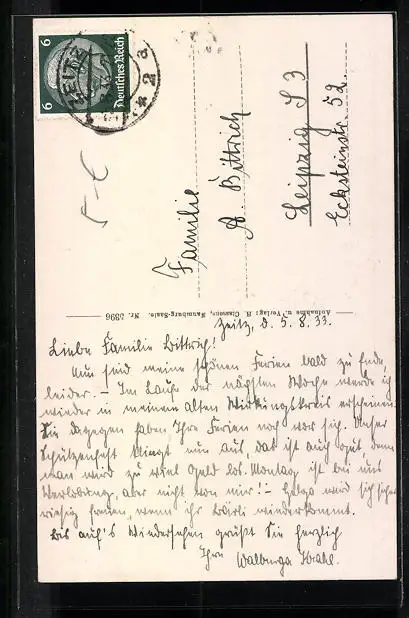 6
6
Deutsches Reich
ZEITZ
* 2 a
Familie
A. Bittrich
Leipzig S 3
Ecksteinstr. 52.
Aufnahme u. Verlag: R. Naumburg-Saale. Nr. 5896
Zeitz, d. 5. 8. 33.
Liebe Familie Bittrich!
Nun sind meine schönen Ferien bald zu Ende,
leider. – Im Laufe der nächsten Woche werde ich
wieder in meinem alten Wirkungskreis erscheinen.
Sie dagegen haben Ihre Ferien noch vor sich. Unser
Schützenfest klingt nun aus, das ist auch gut, denn
man wird zu viel Geld los. Montag ist bei uns
Verlobung, aber nicht von mir! – Helga wird sich sicher
riesig freuen, wenn ihr Bärli wiederkommt.
Bis auf's Wiedersehen grüßt Sie herzlich
Ihre Walburga